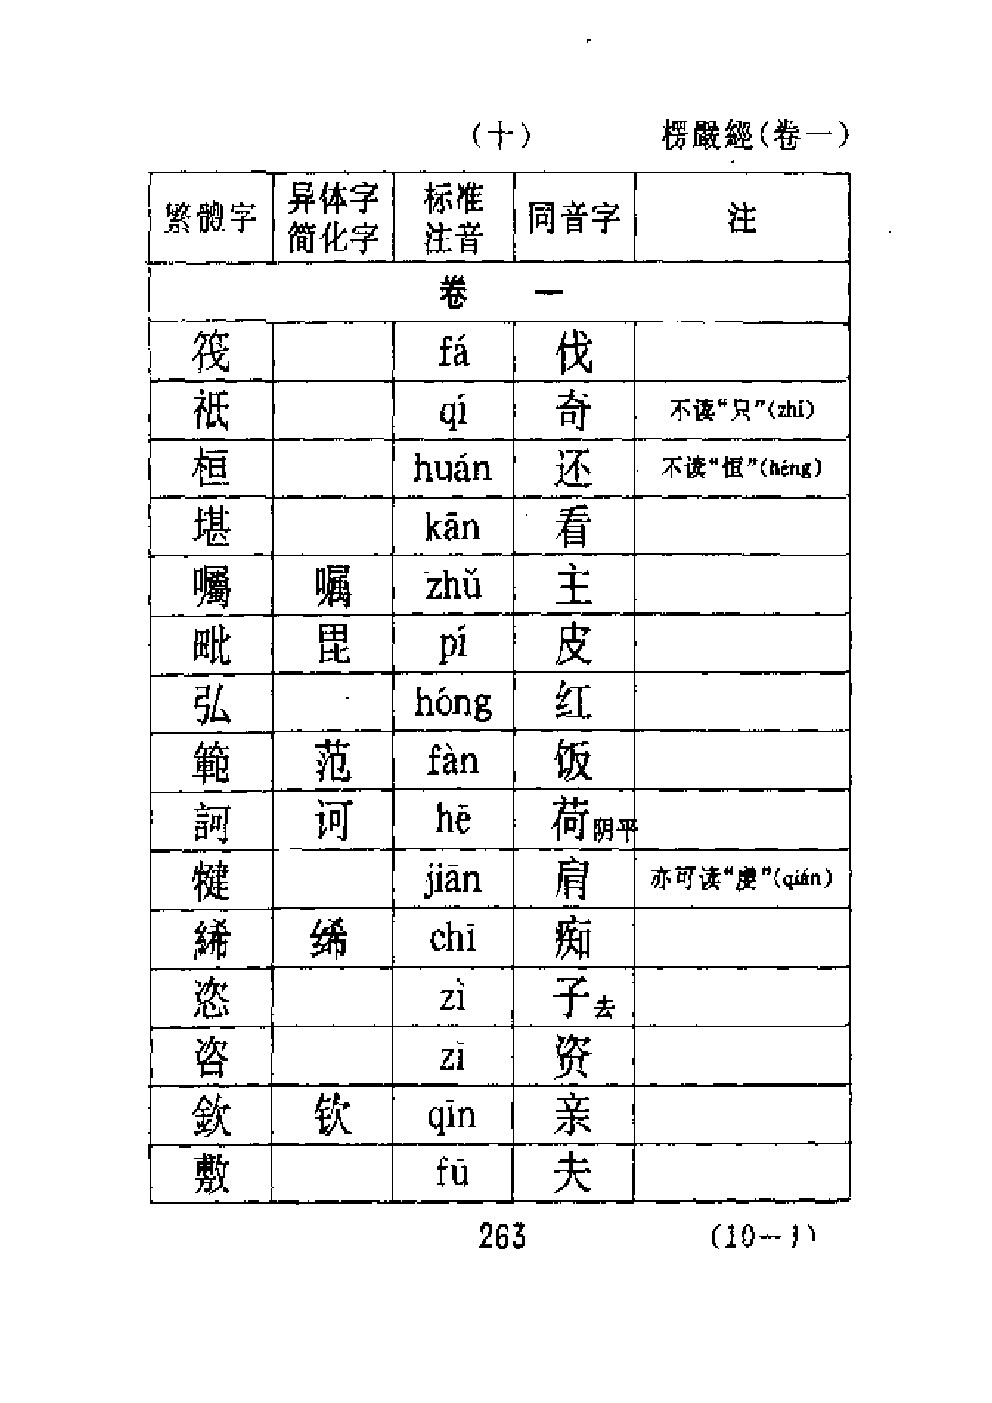 (十) 楞嚴經(卷一)
繁體字 异体字简化字 标准注音 同音字 注
卷 一
筏 fá 伐
祇 qí 奇 不读“只”(zhí)
桓 huán 还 不读“恒”(héng)
堪 kān 看
囑 嘱 zhǔ 主
毗 毘 pí 皮
弘 hóng 红
範 范 fàn 饭
訶 诃 hē 荷阴平
犍 jiān 肩 亦可读“虔”(qián)
絺 𫄨 chī 痴
恣 zì 子去
咨 zī 资
欽 钦 qīn 亲
敷 fū 夫
263 (10—1)